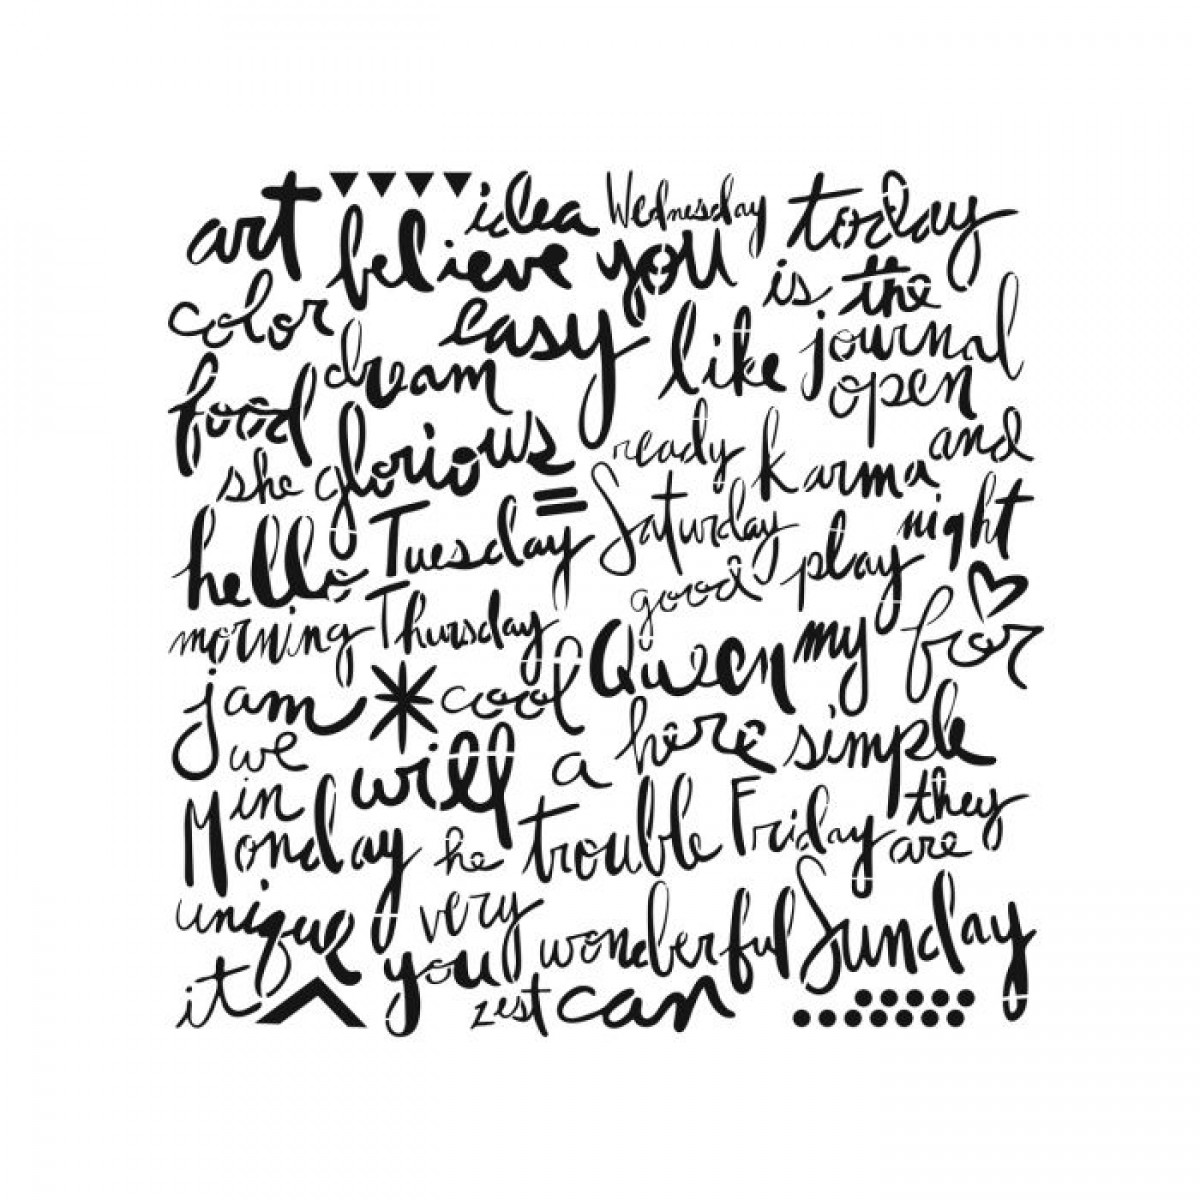 art idea Wednesday today
believe you is the
color easy like journal
food dream open
she glorious ready karma and
hello Tuesday = Saturday play night
morning Thursday good my for
jam * cool Queen
we will a here simple
in they
Monday he trouble Friday are
unique very wonderful Sunday
it you zest can